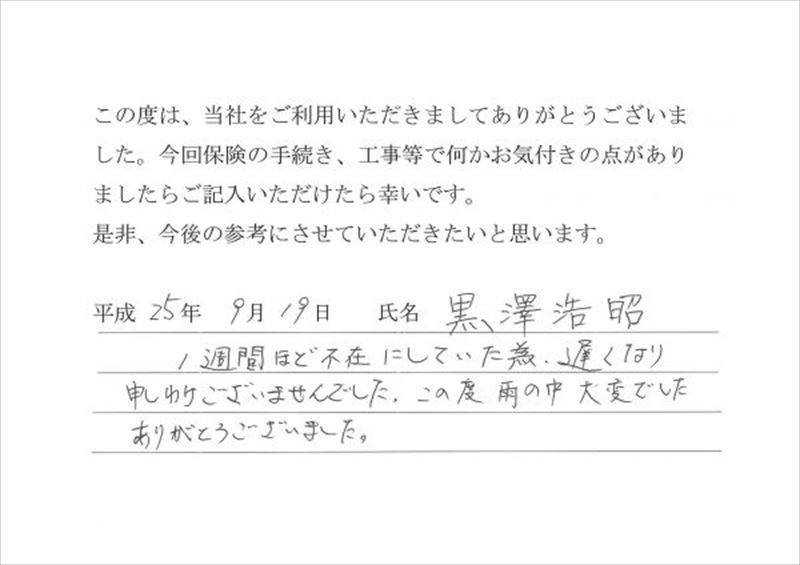 この度は、当社をご利用いただきましてありがとうございま
した。今回保険の手続き、工事等で何かお気付きの点があり
ましたらご記入いただけたら幸いです。
是非、今後の参考にさせていただきたいと思います。
平成 25年 9月 19日 氏名 黒澤浩昭
1週間ほど不在にしていた為、遅くなり
申しわけございませんでした。この度雨の中大変でした
ありがとうございました。